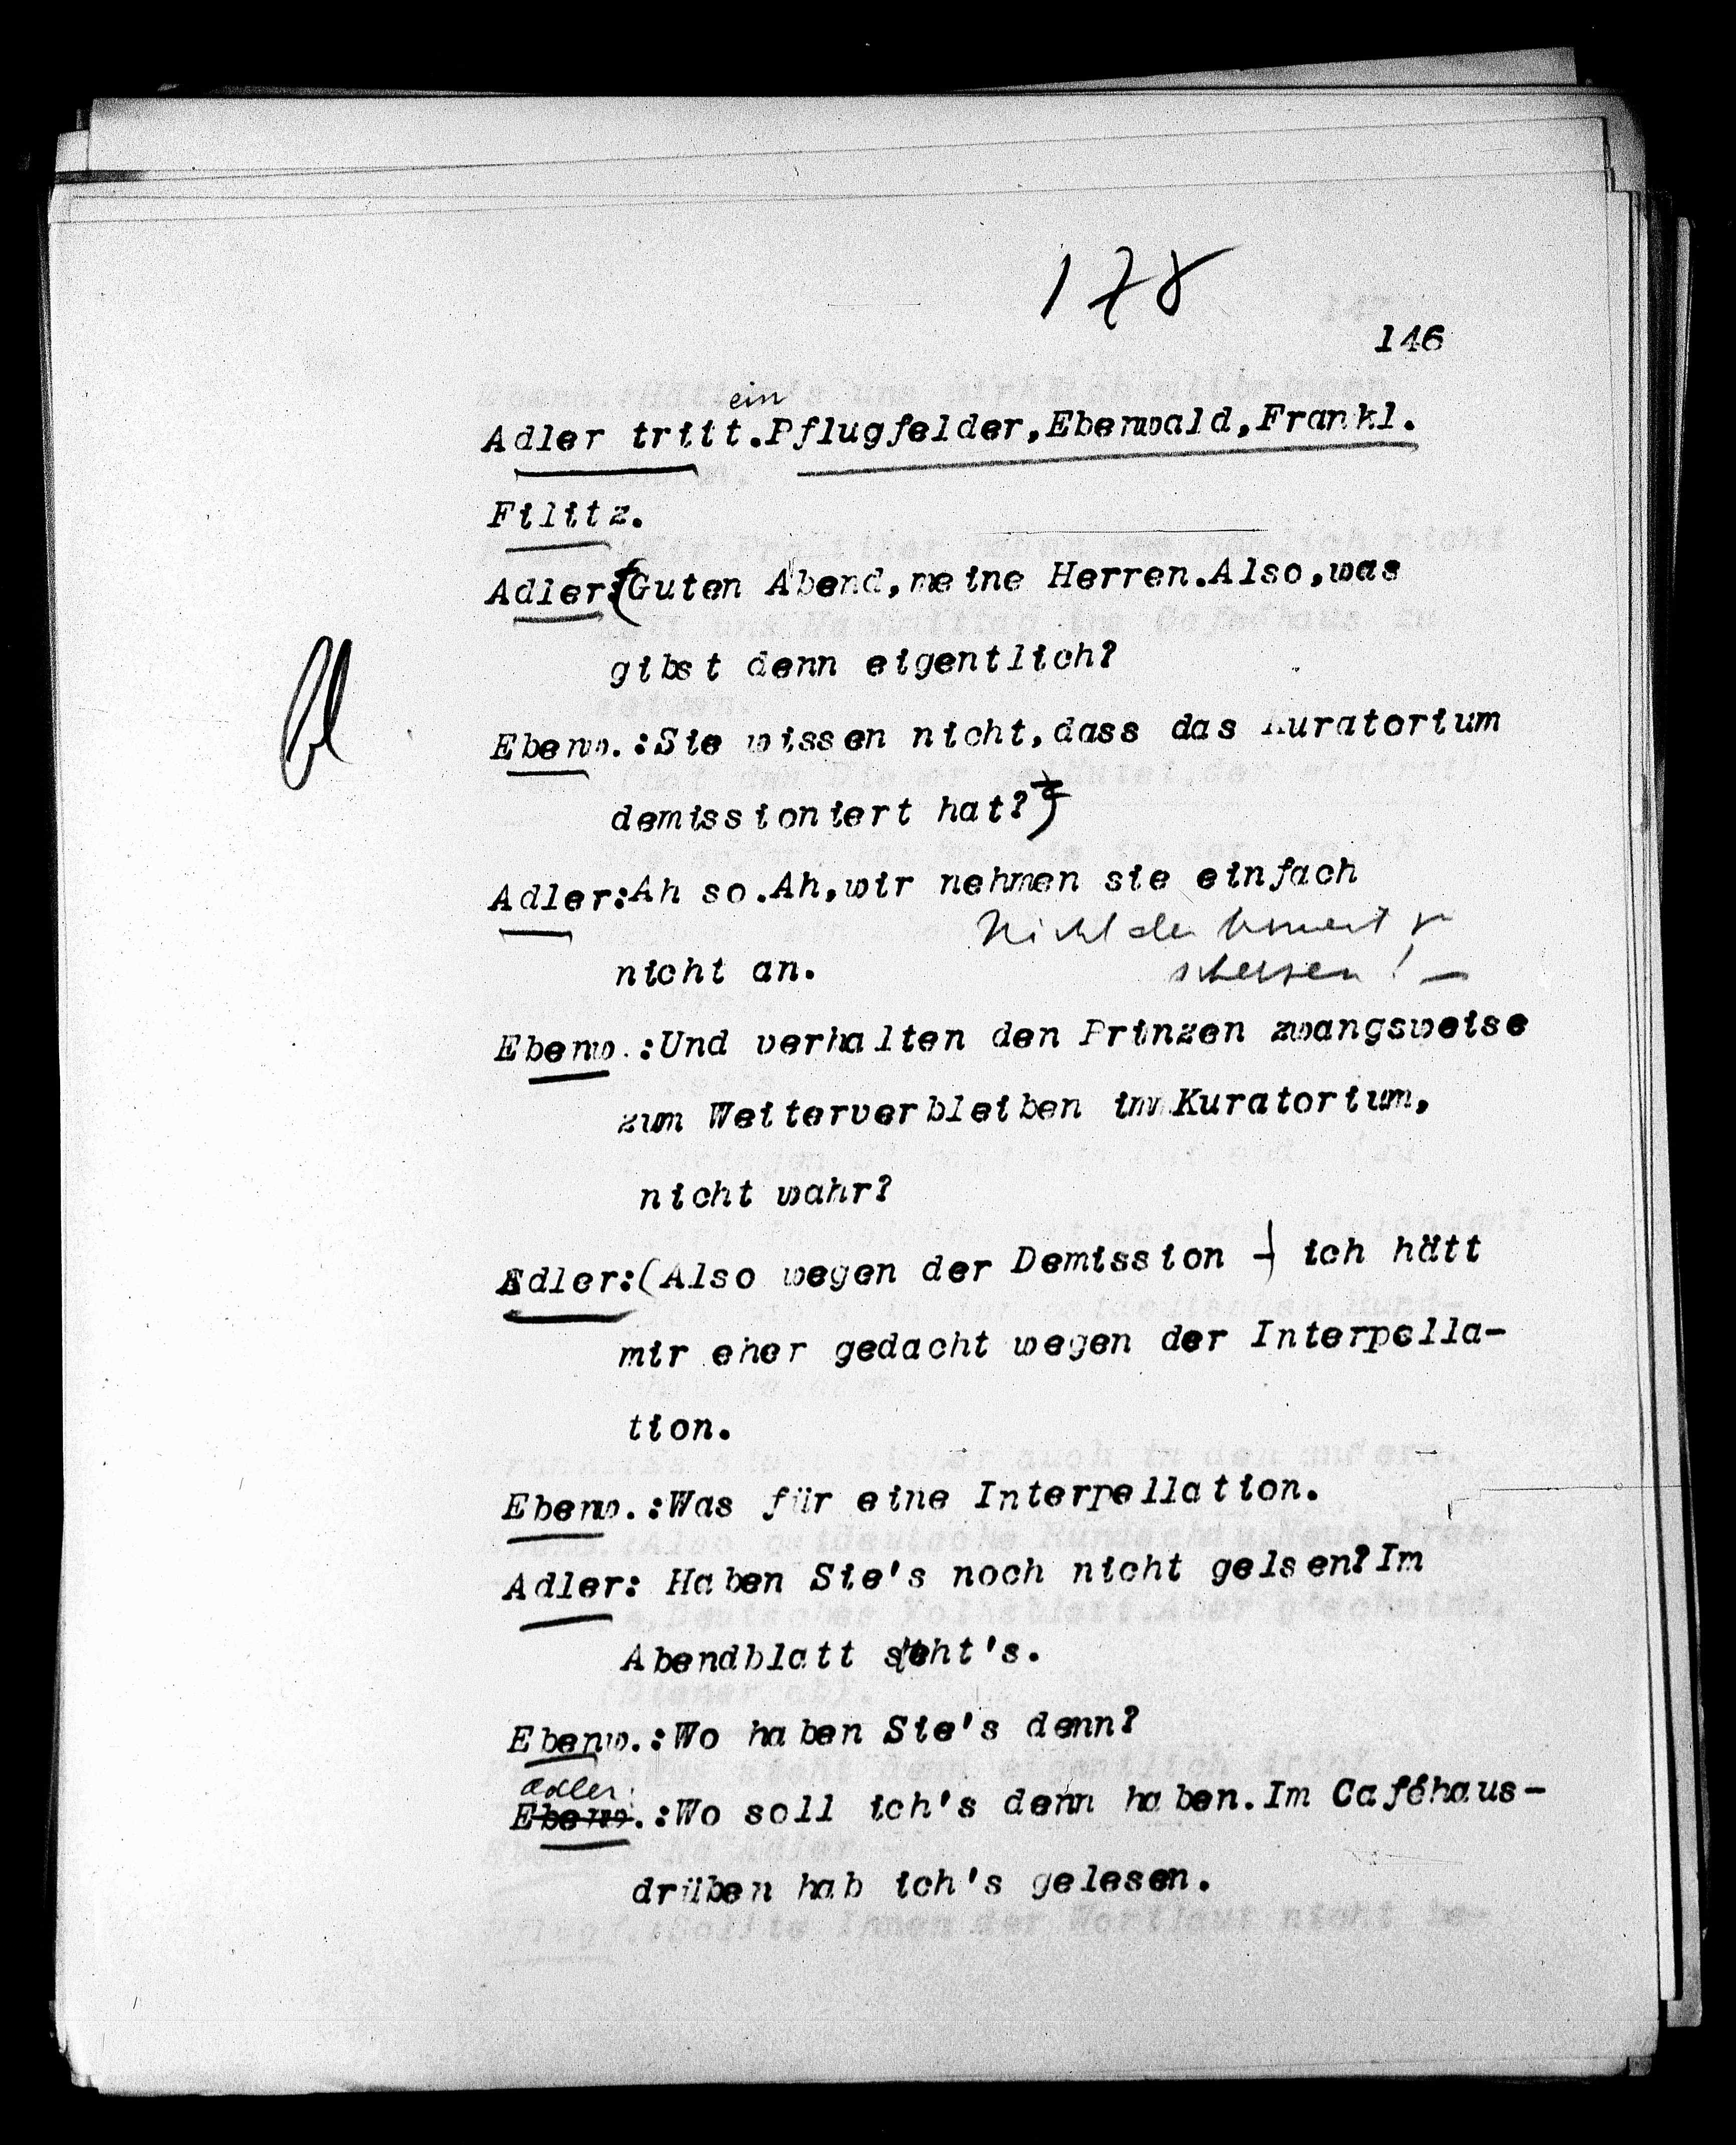 178
146
ein
Adler tritt.Pflugfelder,Ebenwald,Frankl.
Filitz.
Adler:(Guten Abend,meine Herren.Also,was
gibst denn eigentlich?
Ebenw.:Sie wissen nicht,dass das Kuratorium
demissioniert hat?)
Adler:Ah so.Ah,wir nehmen sie einfach
Nicht der
nicht an.
scherzen! –
Ebenw.:Und verhalten den Prinzen zwangsweise
zum Weiterverbleiben im Kuratorium,
nicht wahr?
Adler:(Also wegen der Demission -) ich hätt
mir eher gedacht wegen der Interpella-
tion.
Ebenw.:Was für eine Interpellation.
Adler: Haben Sie's noch nicht gelsen?Im
Abendblatt steht's.
Ebenw.:Wo haben Sie's denn?
Adler
Ebenw.:Wo soll ich's denn haben.Im Caféhaus-
drüben hab ich's gelesen.